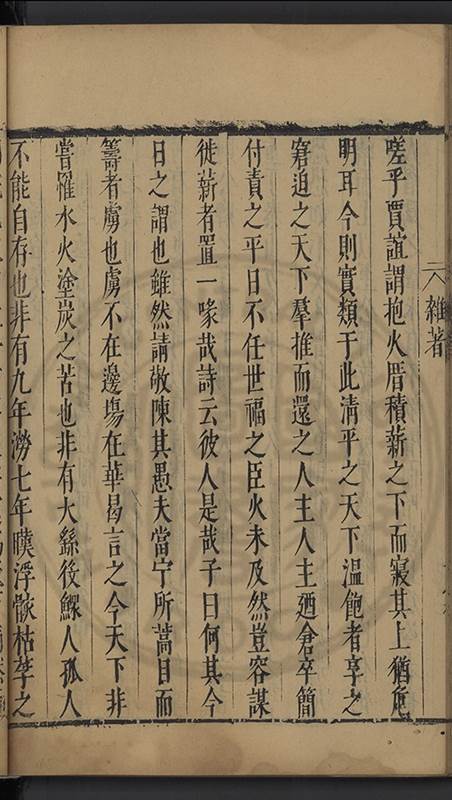 雜著
嗟乎賈誼謂抱火厝積薪之下而寢其上猶危
明耳今則實類于此清平之天下溫飽者享之
窘迫之天下羣推而還之人主人主廼倉卒簡
付責之平日不任世福之臣火未及然豈容謀
徙薪者置一喙哉詩云彼人是哉子曰何其今
日之謂也雖然請敬陳其愚夫當宁所蒿目而
籌者虜也虜不在邊場在華曷言之今天下非
嘗罹水火塗炭之苦也非有大繇役鰥人孤人
不能自存也非有九年澇七年暵浮骸枯莩之